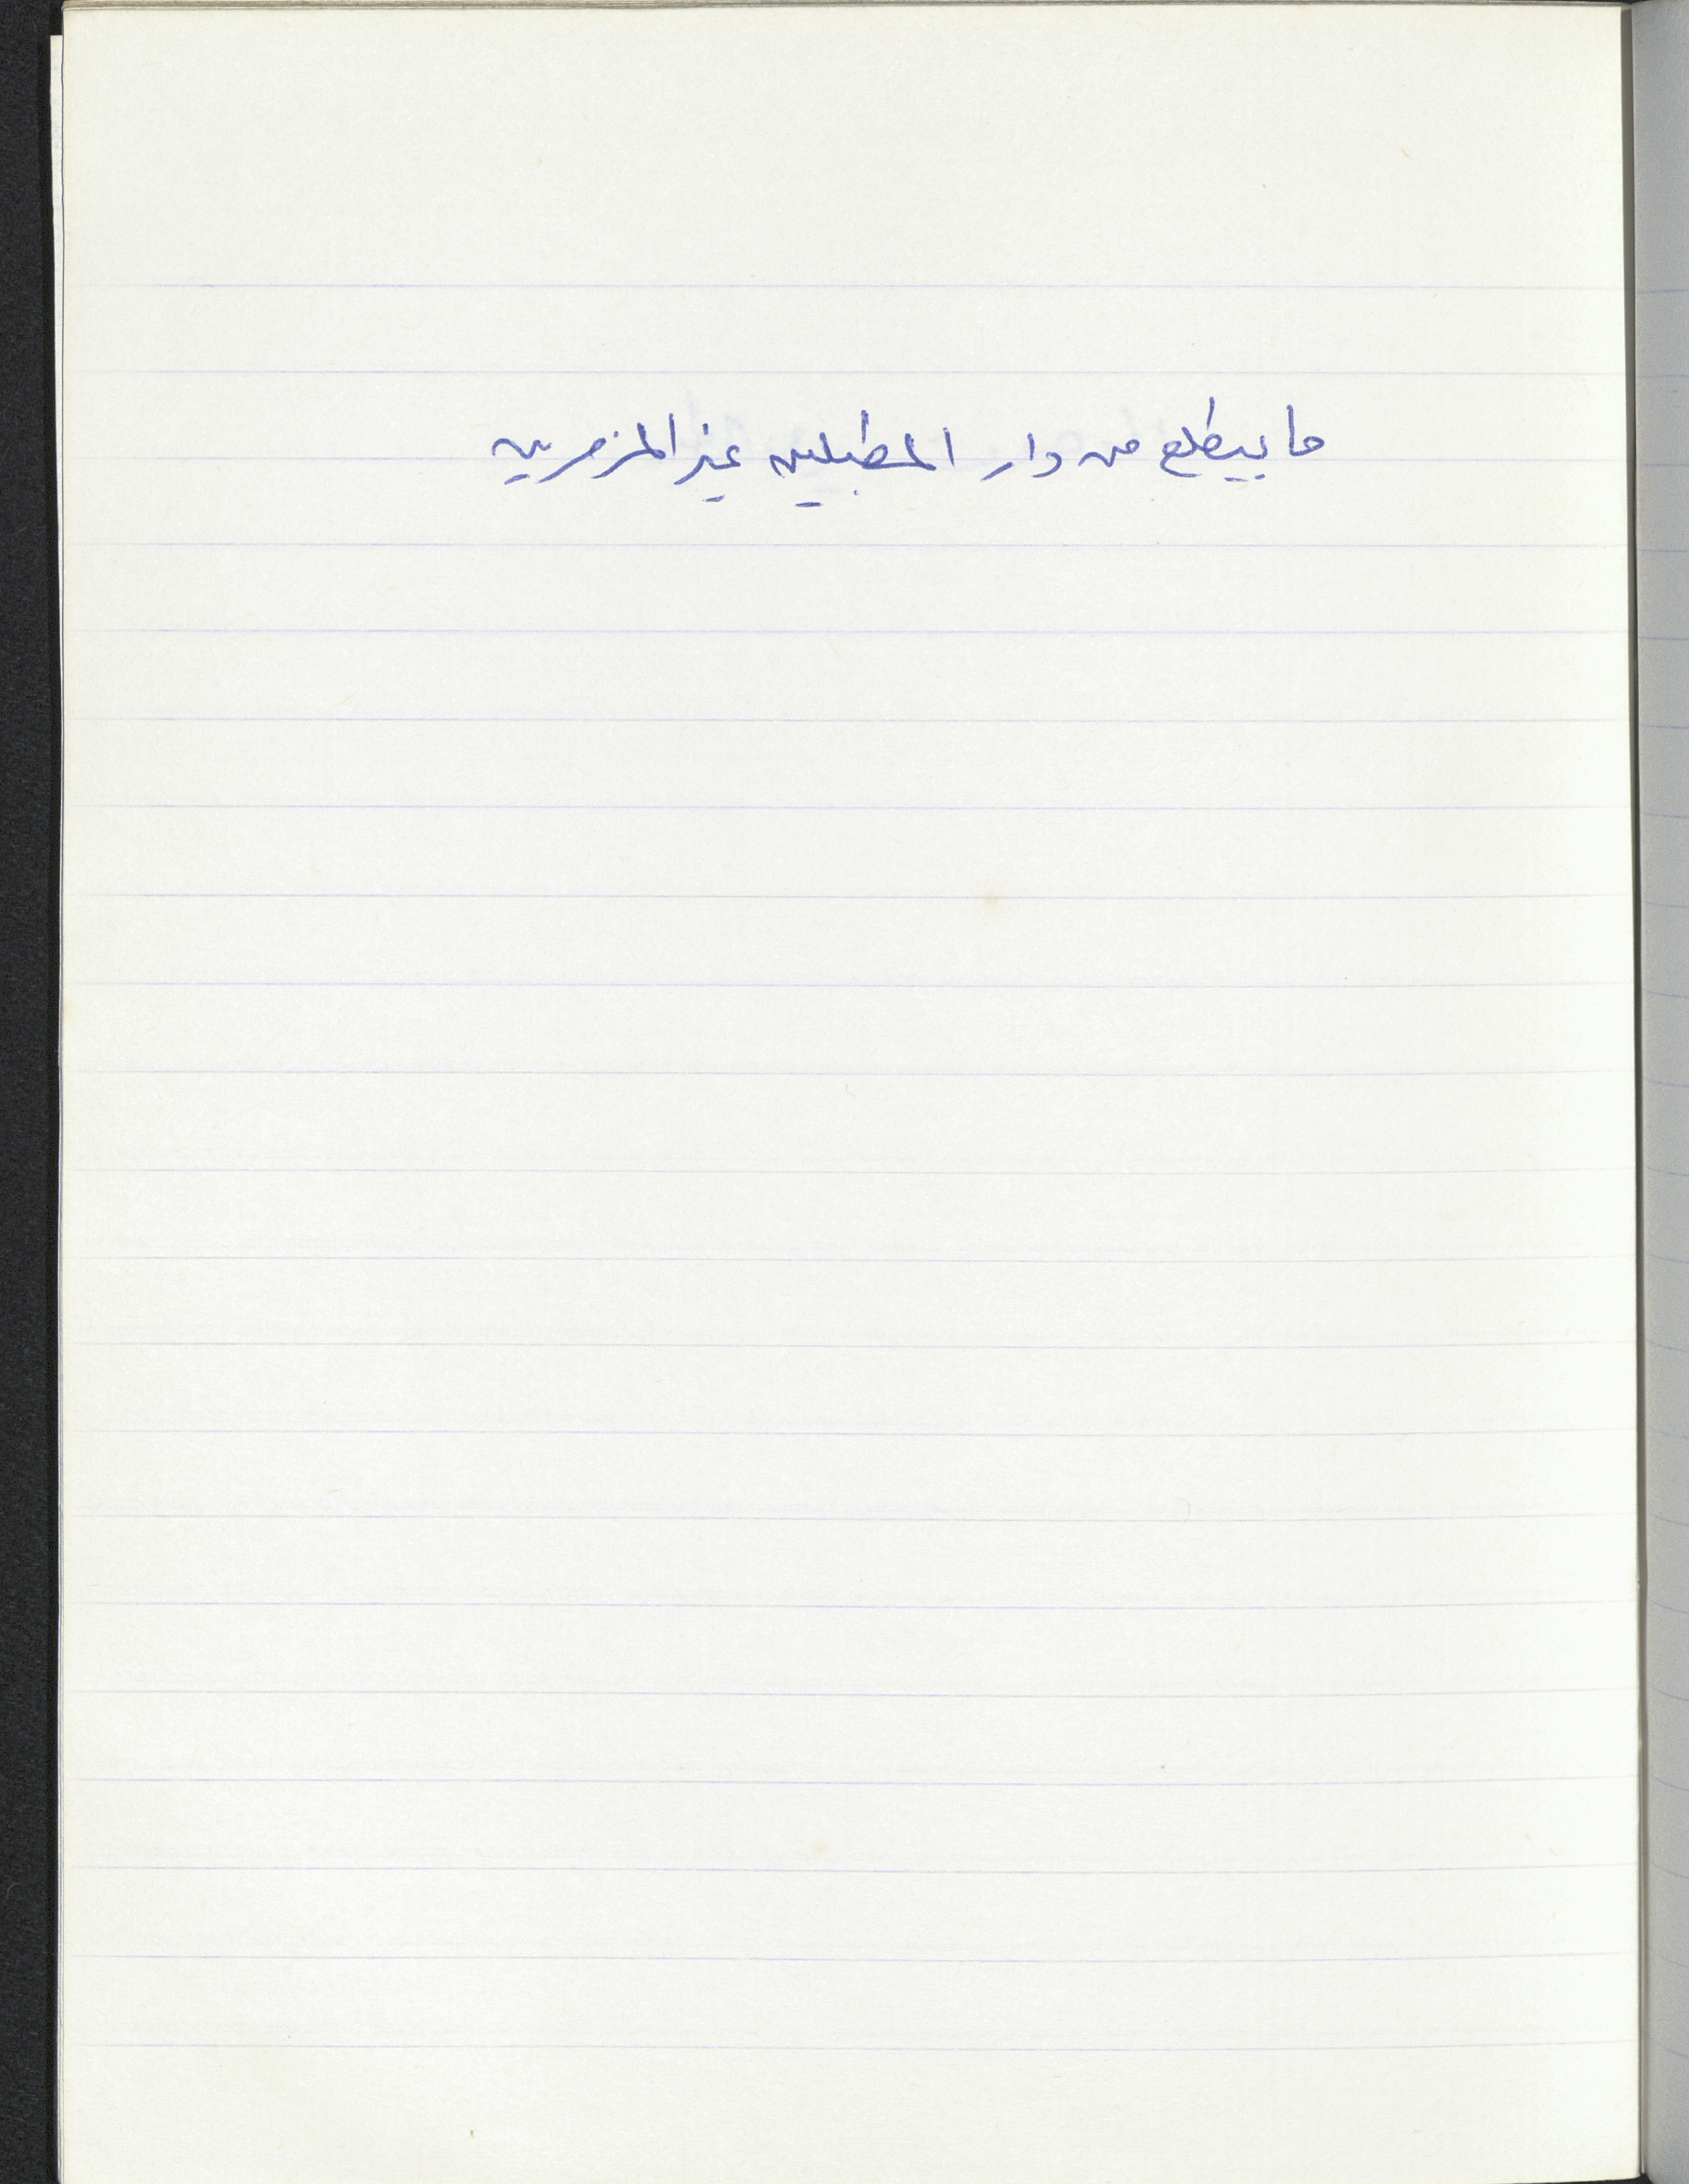 ما بيطلع من دار المطبلين غير المزمرين